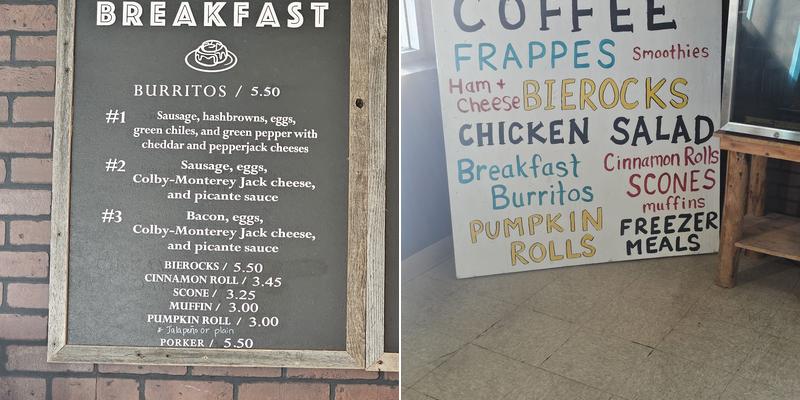 BREAKFAST
BURRITOS / 5.50
#1 Sausage, hashbrowns, eggs,
green chiles, and green pepper with
cheddar and pepperjack cheeses
#2 Sausage, eggs,
Colby-Monterey Jack cheese,
and picante sauce
#3 Bacon, eggs,
Colby-Monterey Jack cheese,
and picante sauce
BIEROCKS / 5.50
CINNAMON ROLL / 3.45
SCONE / 3.25
MUFFIN / 3.00
PUMPKIN ROLL / 3.00
Jalapeño or plain
PORKER / 5.50
COFFEE
FRAPPES Smoothies
Ham +
Cheese BIEROCKS
CHICKEN SALAD
Breakfast
Burritos
Cinnamon Rolls
SCONES
muffins
PUMPKIN
ROLLS
FREEZER
MEALS